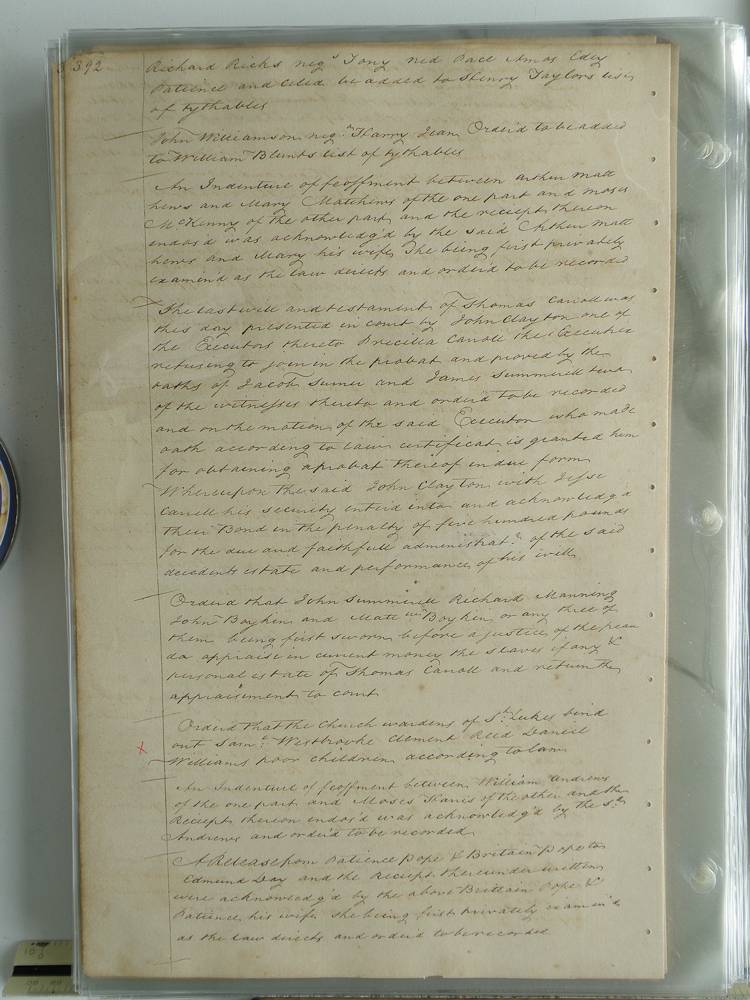 392
Richard Ricks neg.s Tony Ned Pact Amos Edey
Patience and Celid be added to Henry Taylors list
of tythables
John Williamson neg.s Harry Jean Orderd to be added
to William Blunts list of tythables
An Indenture of feoffment between Arthur Matt
hews and Mary Matthews of the one part and Moses
McKenny of the other part and the receipt thereon
endos'd was acknowledg'd by the said Arthur Matt
hews and Mary his wife She being first privately
examin'd as the law directs and order'd to be recorded
The last will and testament of Thomas Caroll was
this day presented in court by John Clayton one of
the Executors thereto Priscilla Caroll the Executrix
refusing to join in the probat and proved by the
oaths of Jacob Sumer and James Summerell two
of the witnesses thereto and order'd to be recorded
and on the motion of the said Executor who made
oath according to law certificat is granted him
for obtaining a probat thereof in due form
Whereupon the said John Clayton with Jesse
Caroll his security enterd into and acknowledg'd
their Bond in the penalty of five hundred pounds
for the due and faithfull administrat.n of the said
decedents estate and performance of his will
Orderd that John Summerell Richard Manning
John Boykin and Matt.w Boykin or any three of
them being first sworn before a justice of the peace
do appraise in current money the slaves if any &
personal estate of Thomas Caroll and return the
appraisement to court
Orderd that the Church wardens of St. Lukes bind
out Sam.l Westbrooke Clement Reed Daniel
Williams poor children according to law
An Indenture of feoffment between William Andrews
of the one part and Moses Harris of the other and the
Receipt thereon endos'd was acknowledg'd by the s.d
Andrews and order'd to be recorded
A Release from Patience Pope & Britain Pope to
Edmund Day and the Receipt thereunder written
were acknowledg'd by the above Brittain Pope &
Patience his wife she being first privately examin'd
as the law directs and order'd to be recorded